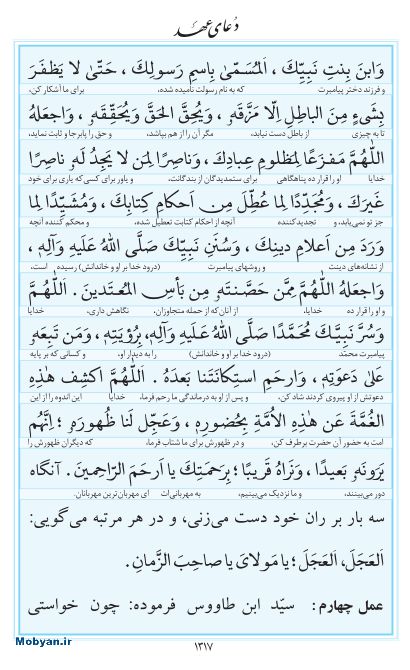 دعای عهد
وَابنَ بِنتِ نَبِیِّكَ ، اَلمُسَمّیٰ بِاسمِ رَسولِكَ ، حَتّیٰ لا یَظفَرَ
و فرزند دختر پیامبرت که به نام رسولت نامیده شده، برای ما آشکار کن،
بِشَیءٍ مِنَ الباطِلِ اِلّا مَزَّقَهٗ ، وَیُحِقَّ الحَقَّ وَیُحَقِّقَهٗ ، وَاجعَلهُ
تا به چیزی از باطل دست نیابد، مگر آن را از هم بپاشد، و حق را پابرجا و ثابت نماید،
اللّٰهُمَّ مَفزَعًا لِمَظلومِ عِبادِكَ ، وَناصِرًا لِمَن لا یَجِدُ لَهٗ ناصِرًا
خدایا او را قرار ده پناهگاهی برای ستمدیدگان از بندگانت، و یاور برای کسی که یاری برای خود
غَیرَكَ ، وَمُجَدِّدًا لِما عُطِّلَ مِن اَحکامِ کِتابِكَ ، وَمُشَیِّدًا لِما
جز تو نمی‌یابد، و تجدیدکننده آنچه از احکام کتابت تعطیل شده، و محکم کننده آنچه
وَرَدَ مِن اَعلامِ دینِكَ ، وَسُنَنِ نَبِیِّكَ صَلَّی اللّٰهُ عَلَیهِ وَآلِهٖ ،
از نشانه‌های دینت و روشهای پیامبرت (درود خدا بر او و خاندانش) رسیده است،
وَاجعَلهُ اللّٰهُمَّ مِمَّن حَصَّنتَهٗ مِن بَأسِ المُعتَدینَ . اَللّٰهُمَّ
و او را قرار ده خدایا، از آنان که از حمله متجاوزان، نگاهش داری، خدایا
وَسُرَّ نَبِیَّكَ مُحَمَّدًا صَلَّی اللّٰهُ عَلَیهِ وَآلِهٖ بِرُؤیَتِهٖ ، وَمَن تَبِعَهٗ
پیامبرت محمّد (درود خدا بر او و خاندانش) را به دیدار او، و کسانی که بر پایه
عَلیٰ دَعوَتِهٖ ، وَارحَمِ استِکانَتَنا بَعدَهٗ . اَللّٰهُمَّ اکشِف هٰذِهِ
دعوتش از او پیروی کردند شاد کن، و پس از او به درماندگی ما رحم فرما، خدایا این اندوه را از این
الغُمَّةَ عَن هٰذِهِ الاُمَّةِ بِحُضورِهٖ ، وَعَجِّل لَنا ظُهورَهٗ ؛ اِنَّهُم
امت به حضور آن حضرت برطرف کن، و در ظهورش برای ما شتاب فرما، که دیگران ظهورش را
یَرَونَهٗ بَعیدًا ، وَنَراهُ قَریبًا ؛ بِرَحمَتِكَ یا اَرحَمَ الرّاحِمینَ . آنگاه
دور می‌بینند، و ما نزدیک می‌بینیم، به مهربانی‌ات ای مهربان‌ترین مهربانان.
سه بار بر ران خود دست می‌زنی، و در هر مرتبه می‌گویی:
اَلعَجَلَ، اَلعَجَلَ؛ یا مَولایَ یا صاحِبَ الزَّمانِ.
عمل چهارم: سیّد ابن طاووس فرموده: چون خواستی
۱۳۱۷
Mobyan.ir